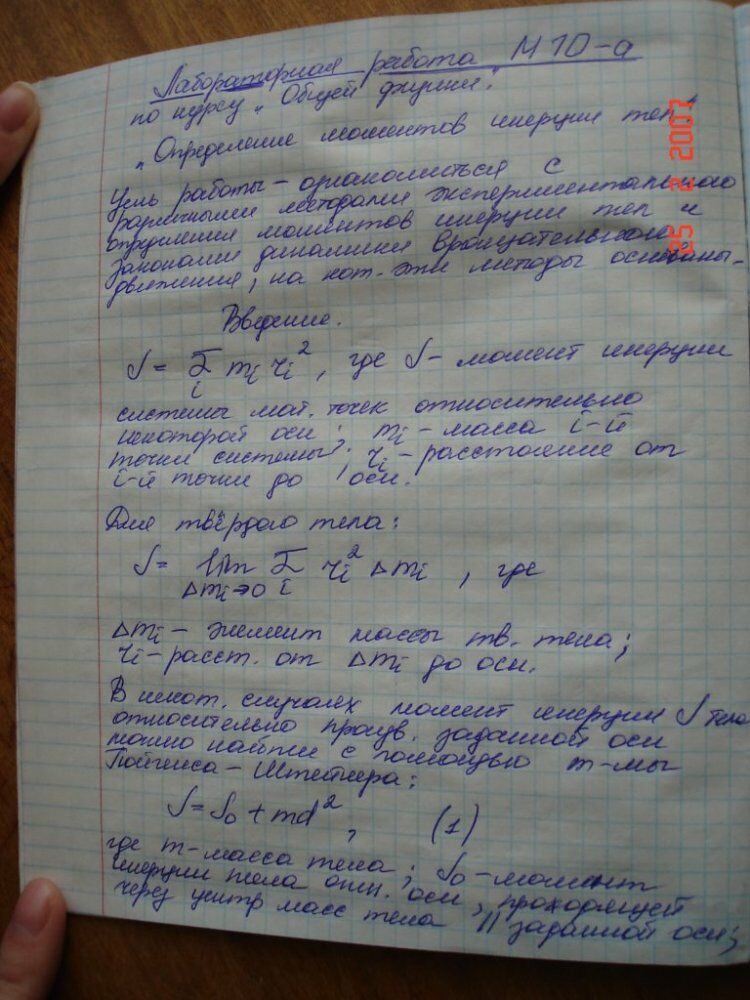 Лабораторная работа М10-а
по курсу „Общей физики".
„Определение моментов инерции тел"
Цель работы – ознакомиться с
различными методами экспериментального
определения моментов инерции тел и
законами динамики вращательного
движения, на кот. эти методы основаны.
Введение.
J = Σ_i m_i r_i², где J – момент инерции
системы мат. точек относительно
некоторой оси; m_i – масса i-й
точки системы; r_i – расстояние от
i-й точки до оси.
Для твёрдого тела:
J = lim_{Δm_i→0} Σ_i r_i² Δm_i, где
Δm_i – элемент массы тв. тела;
r_i – расст. от Δm_i до оси.
В некот. случаях момент инерции J тела
относительно произв. заданной оси
можно найти с помощью т-мы
Гюйгенса – Штейнера:
J = J₀ + md², (1)
где m – масса тела; J₀ – момент
инерции тела отн. оси, проходящей
через центр масс тела || заданной оси;
25 2 2007